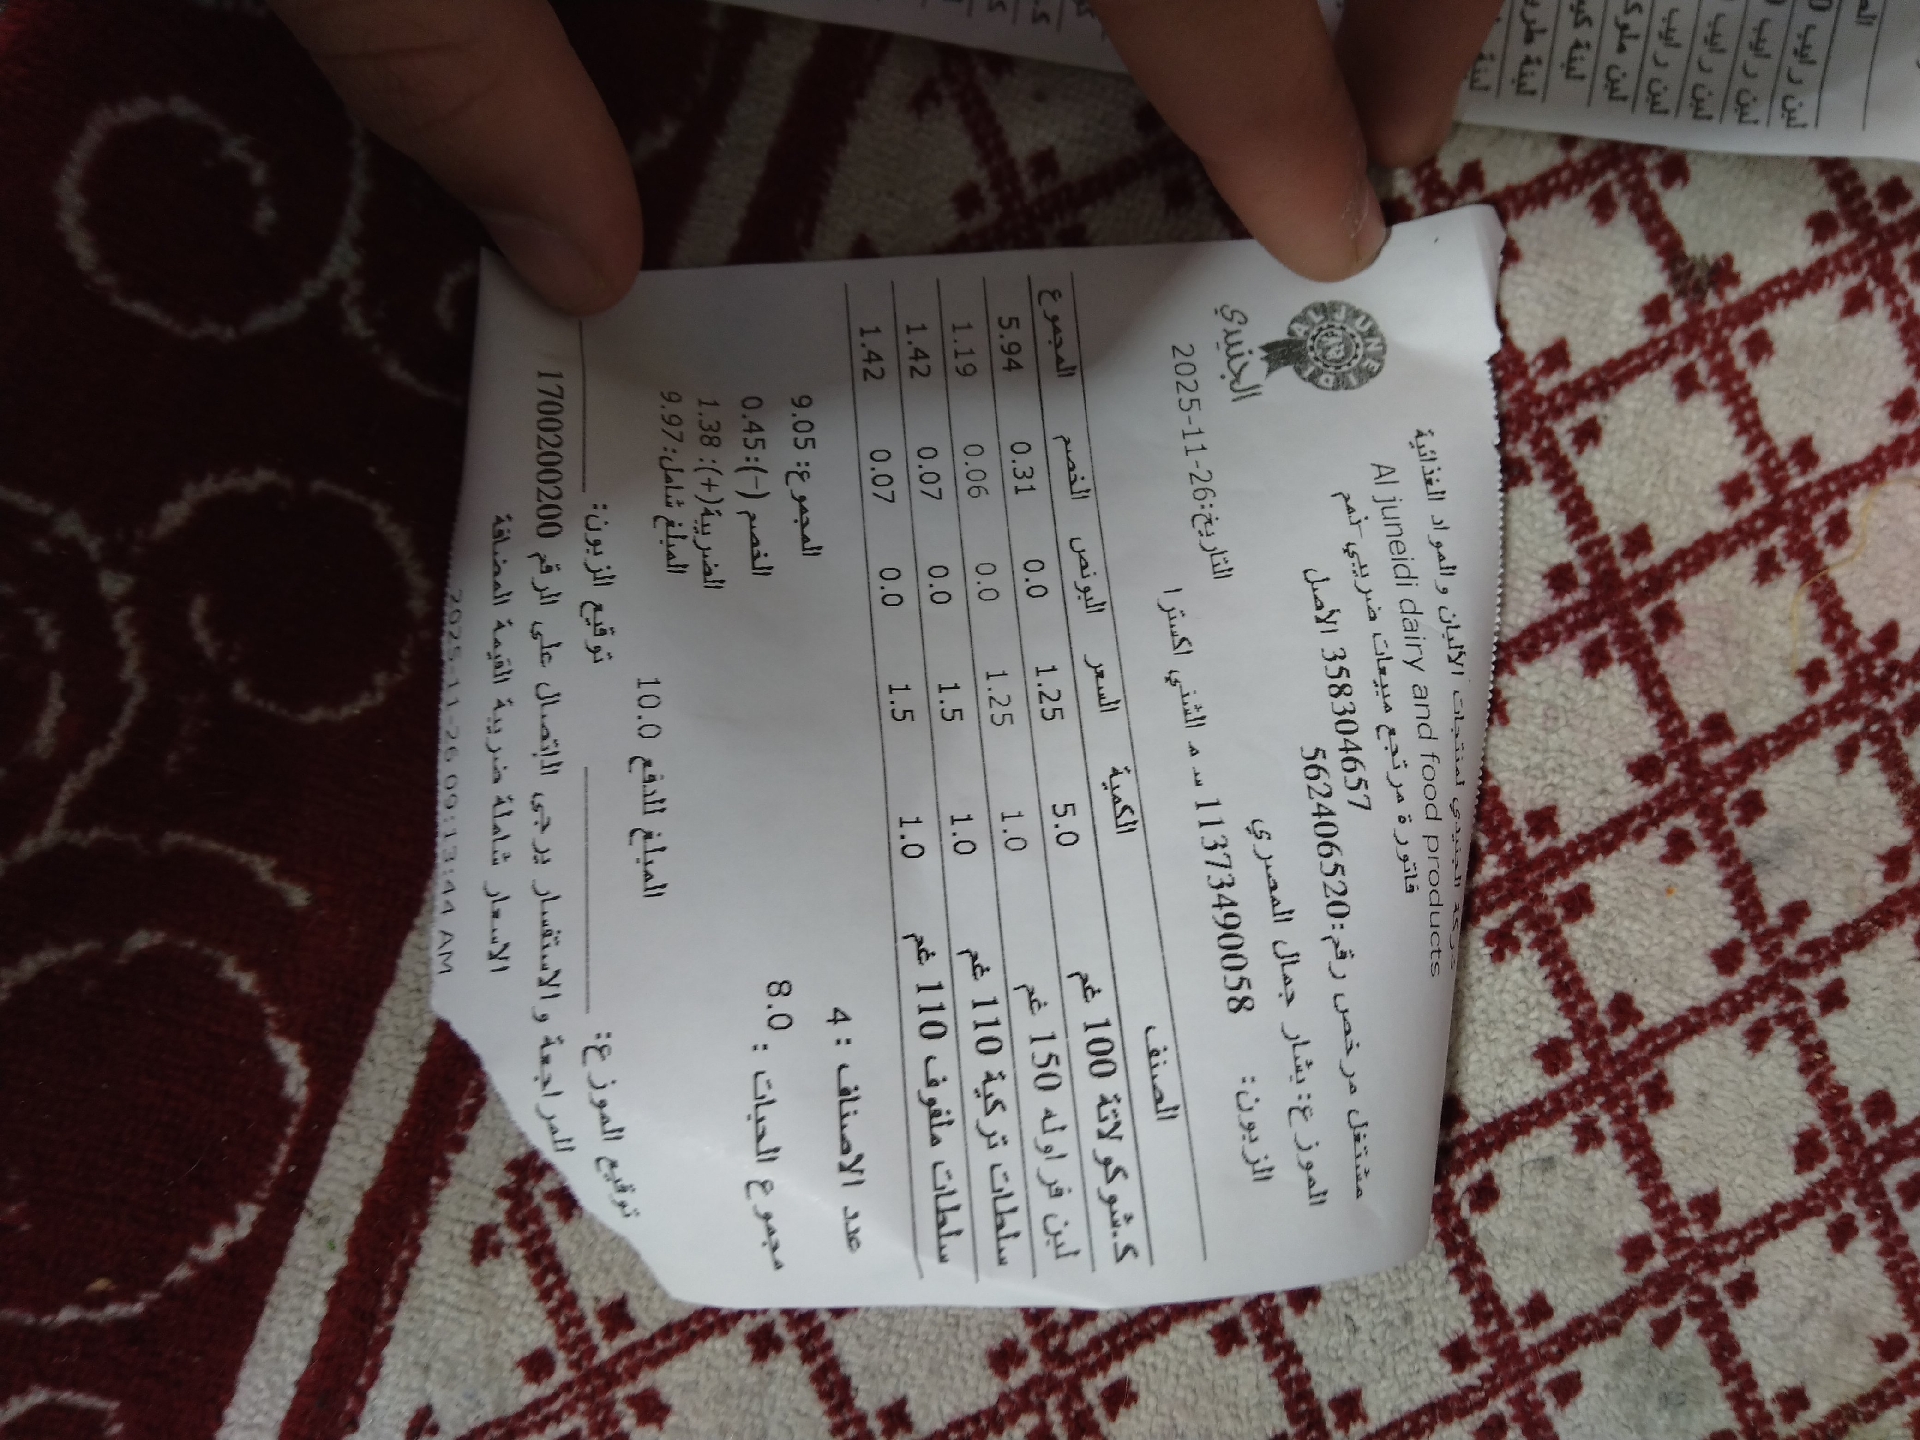 شركة الجنيدي لمنتجات الألبان والمواد الغذائية
Al juneidi dairy and food products
فاتورة مرتجع مبيعات ضريبي ذمم
358304657 الأصل
مشتغل مرخص رقم: 562406520
الموزع: بشار جمال المصري
الزبون: 1137349005 8 س م الثني اكسترا
التاريخ: 2025-11-26
الجنيدي
AL JUNEIDI
الصنف الكمية السعر البونص الخصم المجموع
ك.شوكولاتة 100 غم 5.0 1.25 0.0 0.31 5.94
لبن فراوله 150 غم 1.0 1.25 0.0 0.06 1.19
سلطات تركية 110 غم 1.0 1.5 0.0 0.07 1.42
سلطات ملفوف 110 غم 1.0 1.5 0.0 0.07 1.42
عدد الاصناف : 4
المجموع: 9.05
مجموع الحبات : 8.0
الخصم (-): 0.45
الضريبة(+): 1.38
المبلغ شامل: 9.97
المبلغ للدفع 10.0
توقيع الموزع: توقيع الزبون:
للمراجعة والاستفسار يرجى الاتصال على الرقم 1700200200
الاسعار شاملة ضريبة القيمة المضافة
2025-11-26 09:13:44 AM
لبن رايب
لبن رايب
لبن رايب
لبن رايب